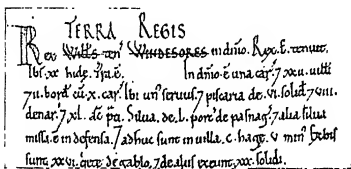 TERRA REGIS
Rex Wills ten WINDESORES in dnio. Rex. E. tenuit.
Ibi. xx. hidę. Tra ē. In dnio. ē una car. 7 xxii. uilli
7 ii. bord cū. x. car. Ibi un seruus. 7 piscaria de. vi. solid 7 viii.
denar. 7 xl. ac pti. Silua. de. l. porc de pasnag. 7 alia silua
missa. ē in defensa. 7 adhuc sunt in uilla. c. hagę. v min. Ex his
sunt. xxvi. quietę de gablo. 7 de aliis exeunt. xxx. solidi.